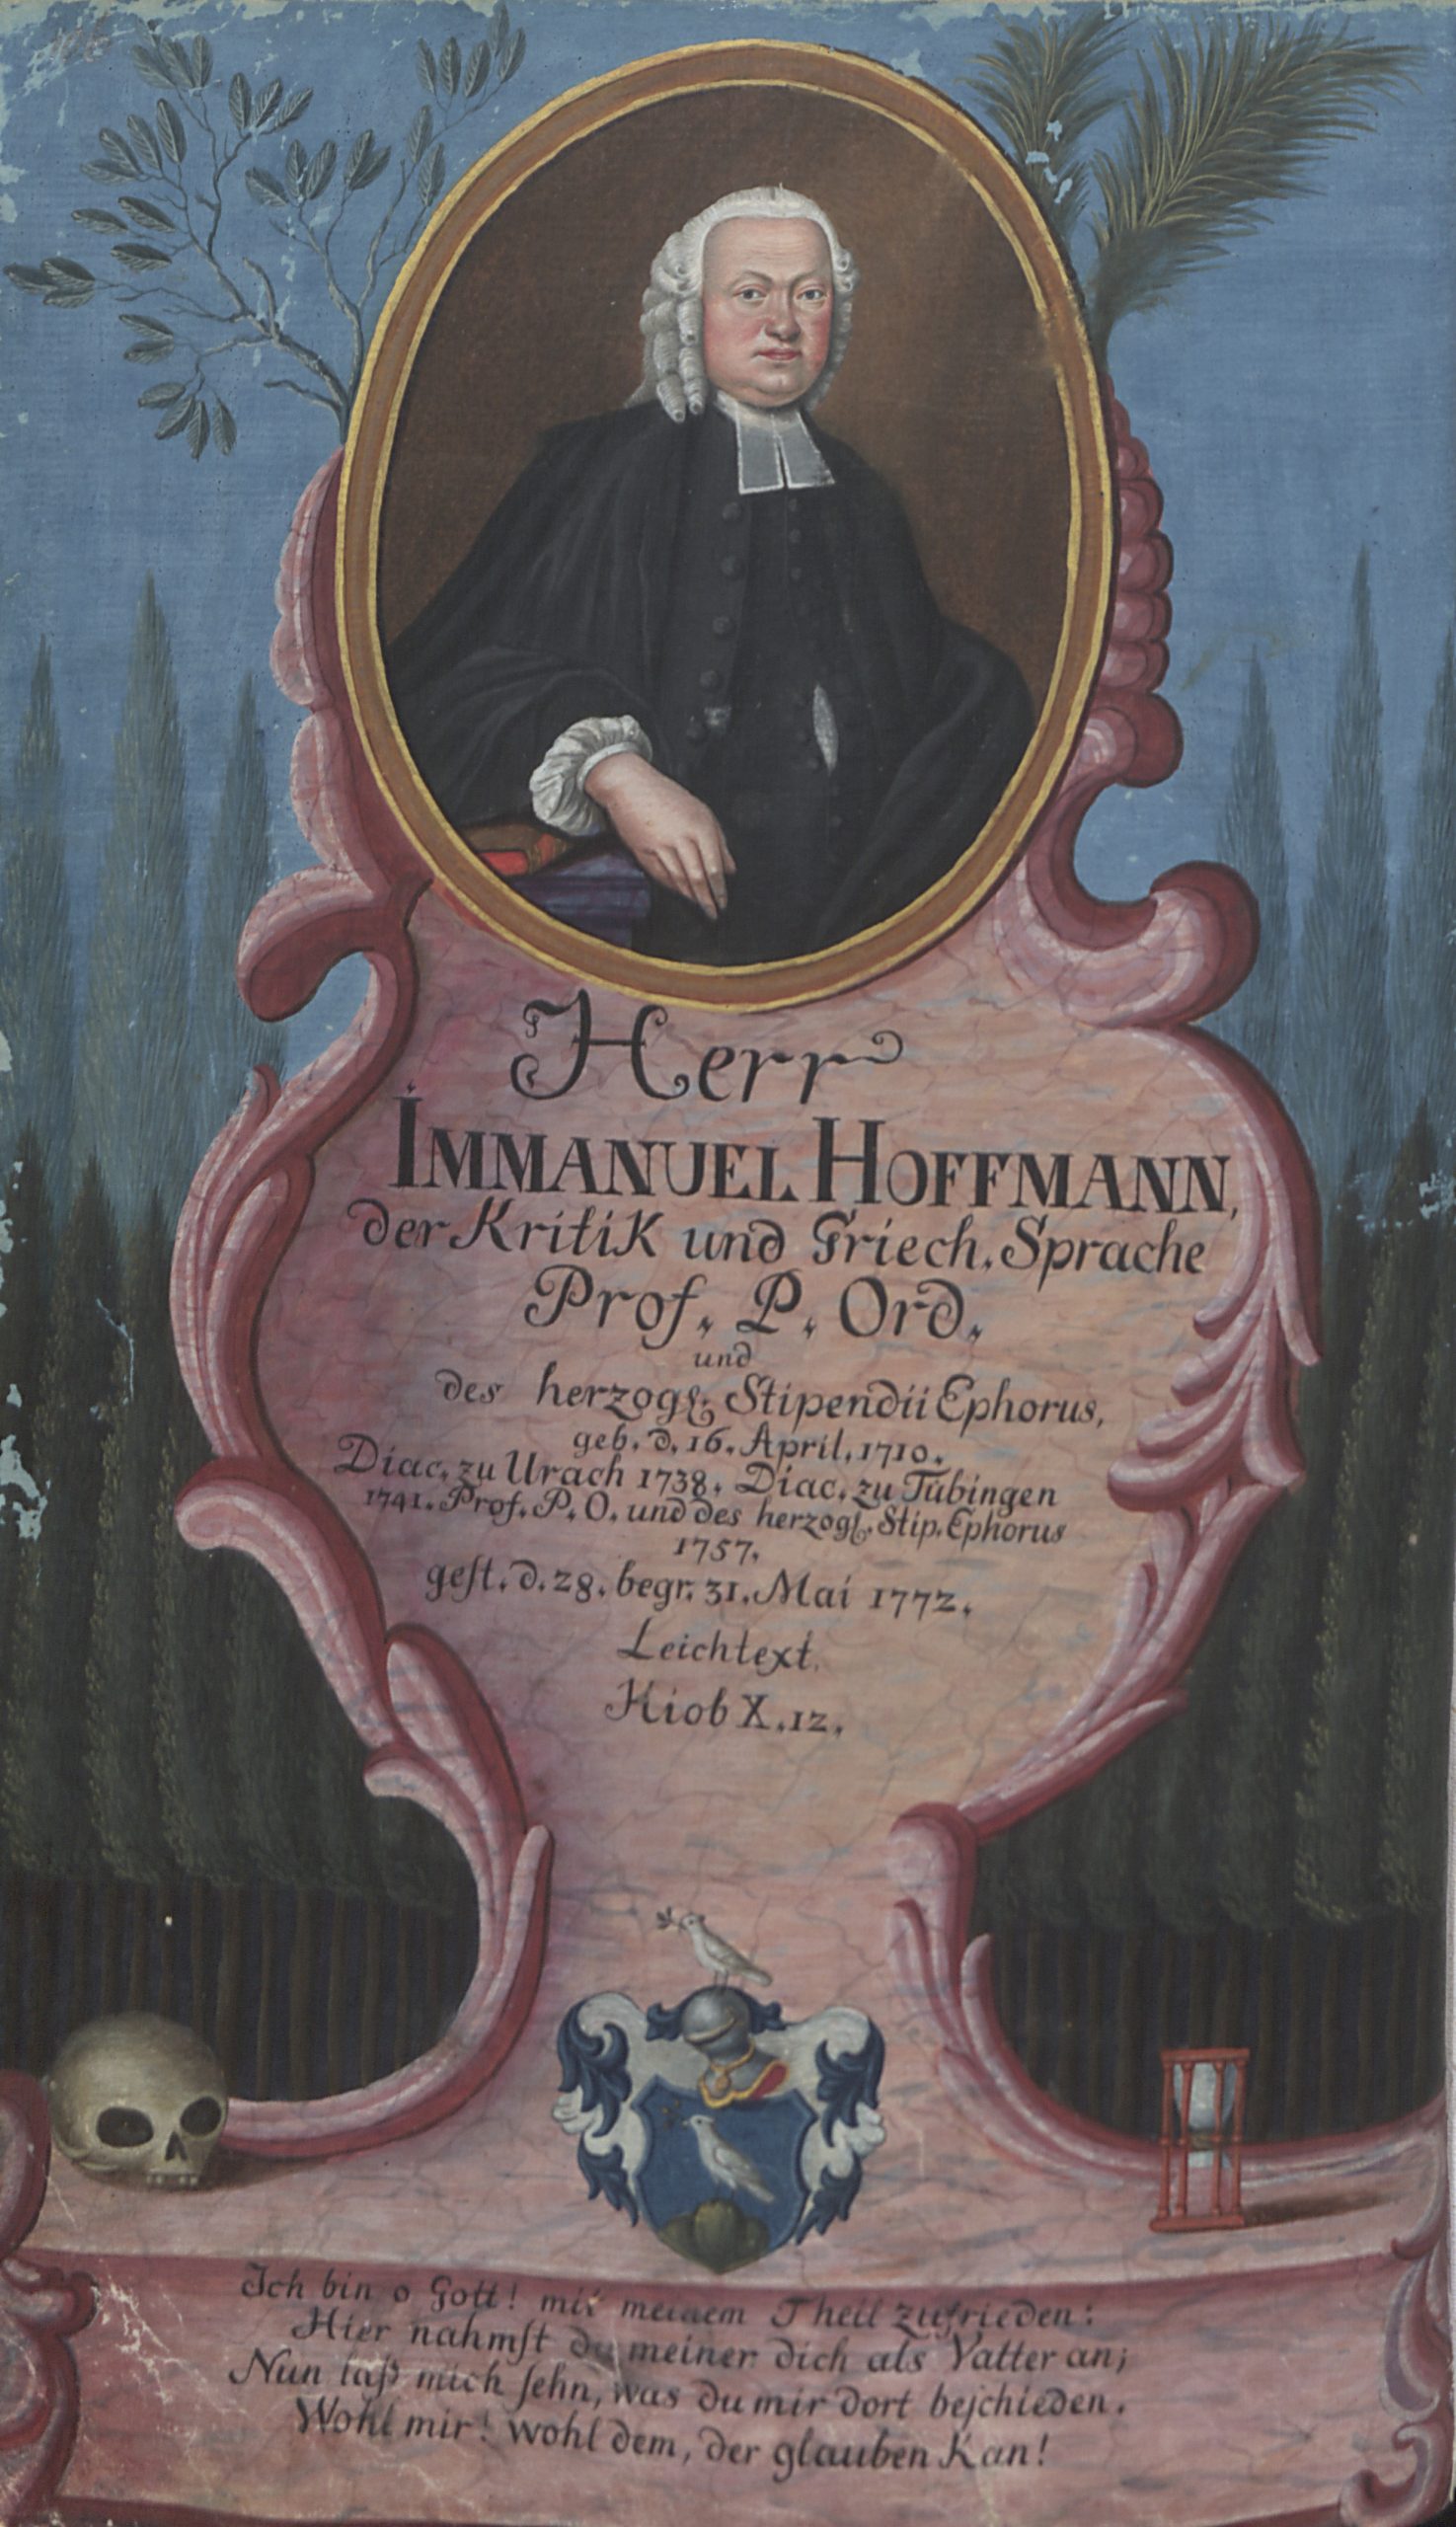 Herr
IMMANUEL HOFFMANN,
der Kritik und Griech. Sprache
Prof. P. Ord.
und
des herzogl. Stipendii Ephorus,
geb. d. 16. April. 1710.
Diac. zu Urach 1738. Diac. zu Tübingen
1741. Prof. P. O. und des herzogl. Stip. Ephorus
1757.
geſt. d. 28. begr. 31. Mai 1772.
Leichtext.
Hiob X. 12.
Ich bin o Gott! mit meinem Theil zufrieden:
Hier nahmſt du meiner dich als Vatter an;
Nun laß mich ſehn, was du mir dort beſchieden.
Wohl mir! wohl dem, der glauben Kan!